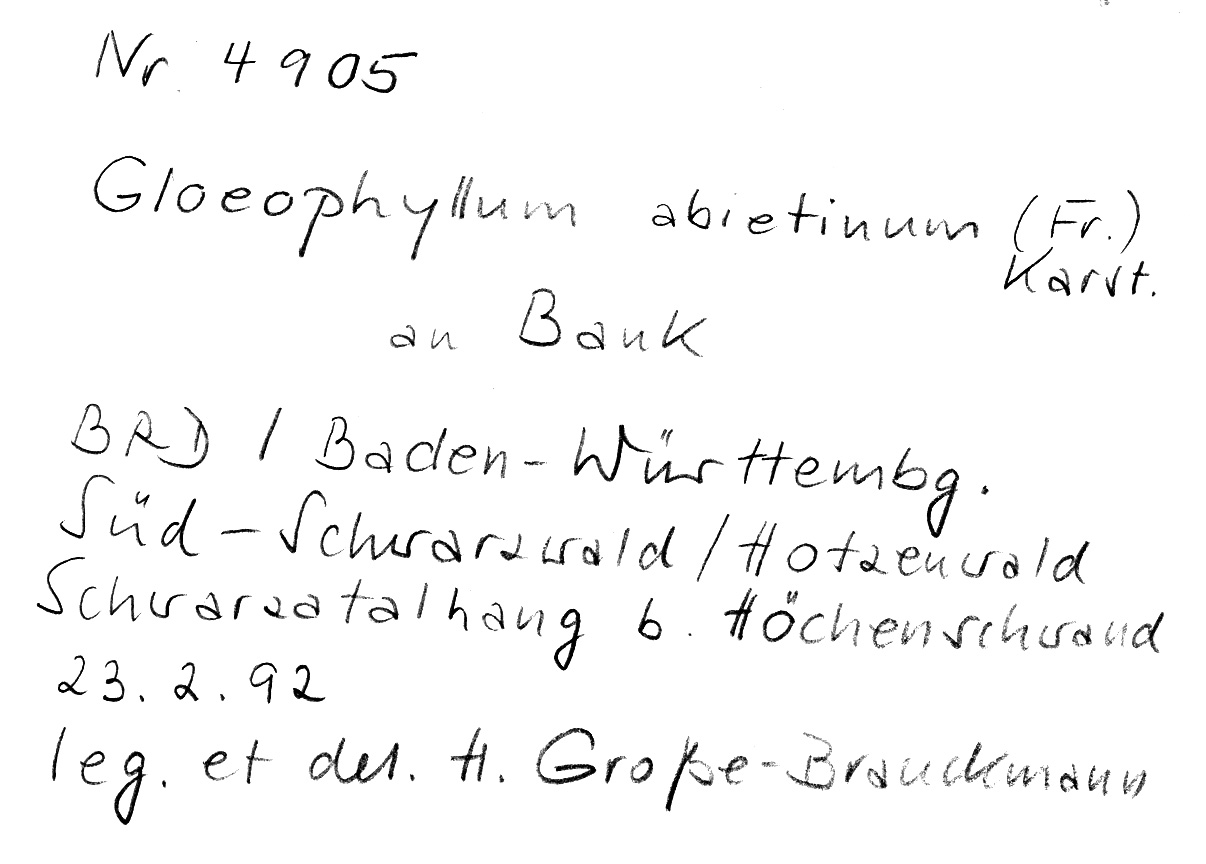 Nr. 4905
Gloeophyllum abietinum (Fr.)
Karst.
an Bank
BRD / Baden-Württembg.
Süd-Schwarzwald / Hotzenwald
Schwarzatalhang b. Höchenschwand
23.2.92
leg. et det. H. Große-Brauckmann